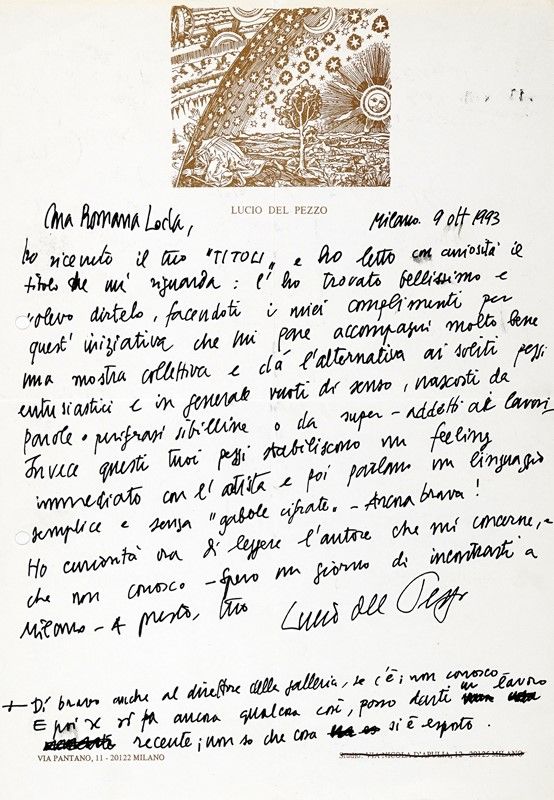 LUCIO DEL PEZZO
Milano. 9 ott 1993
Cara Romana Loda,
ho ricevuto il tuo "TITOLI" e ho letto con curiosità il
titolo che mi riguarda: l'ho trovato bellissimo e
volevo dirtelo, facendoti i miei complimenti per
quest'iniziativa che mi pare accompagni molto bene
una mostra collettiva e dà l'alternativa ai soliti pezzi
entusiastici e in generale vuoti di senso, nascosti da
parole o perifrasi sibilline o da super-addetti ai lavori
Invece questi tuoi pezzi stabiliscono un feeling
immediato con l'artista e poi parlano un linguaggio
semplice e senza "gabole cifrate" - Ancora brava!
Ho curiosità ora di leggere l'autore che mi concerne, e
che non conosco - Spero un giorno di incontrarti a
Milano - A presto, tuo
Lucio del Pezzo
+ Di' bravo anche al direttore della galleria, se c'è; non conosco
E poi se si fa ancora qualcosa così, posso darti un lavoro
recente; non so che cosa si è esposto.
VIA PANTANO, 11 - 20122 MILANO
Studio: VIA NICOLA D'APULIA, 12 - 20125 MILANO